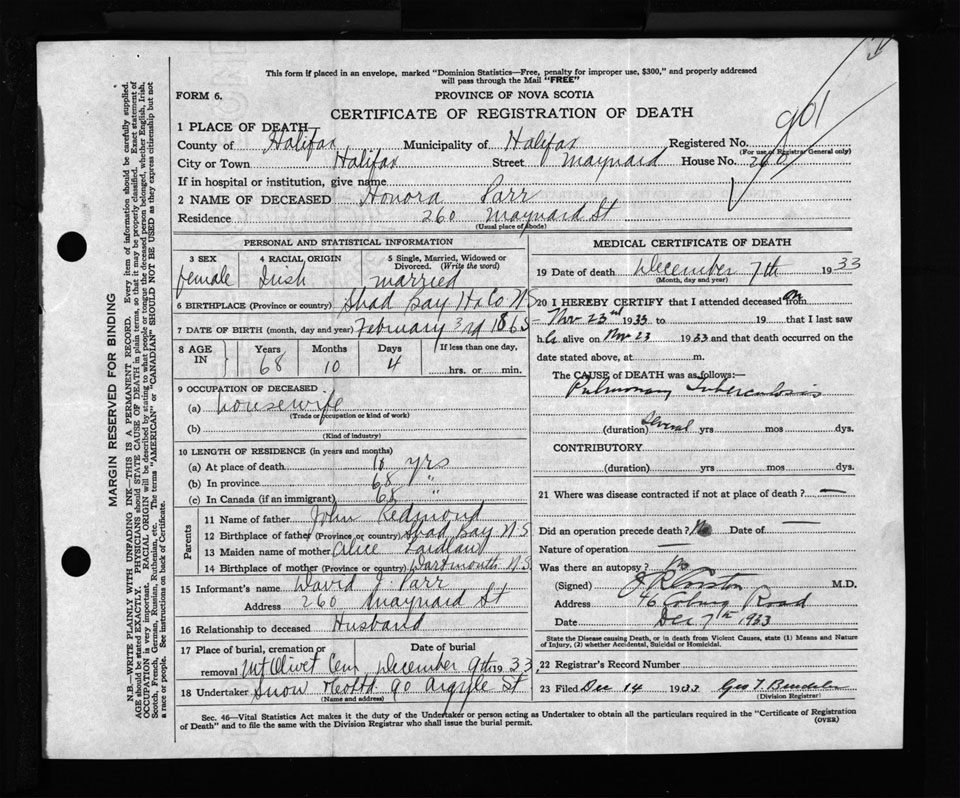 This form if placed in an envelope, marked "Dominion Statistics—Free, penalty for improper use, $300," and properly addressed
will pass through the Mail "FREE"
FORM 6.
PROVINCE OF NOVA SCOTIA
CERTIFICATE OF REGISTRATION OF DEATH
901
1 PLACE OF DEATH—
County of Halifax Municipality of Halifax Registered No.
(For use of Registrar General only)
City or Town Halifax Street Maynard House No. 260
If in hospital or institution, give name
2 NAME OF DECEASED Honora Parr
Residence 260 Maynard St
(Usual place of abode)
PERSONAL AND STATISTICAL INFORMATION
3 SEX 4 RACIAL ORIGIN 5 Single, Married, Widowed or Divorced. (Write the word)
female Irish married
6 BIRTHPLACE (Province or country) Shad Bay Hx Co N S
7 DATE OF BIRTH (month, day and year) February 3rd 1865
8 AGE IN Years Months Days If less than one day,
68 10 4 hrs. or min.
9 OCCUPATION OF DECEASED
(a) housewife
(Trade or occupation or kind of work)
(b)
(Kind of industry)
10 LENGTH OF RESIDENCE (in years and months)
(a) At place of death 10 yrs
(b) In province 68 "
(c) In Canada (if an immigrant) 68 "
Parents
11 Name of father John Redmond
12 Birthplace of father (Province or country) Shad Bay N S
13 Maiden name of mother Alice Laidlaw
14 Birthplace of mother (Province or country) Dartmouth N S
15 Informant's name David J Parr
Address 260 Maynard St
16 Relationship to deceased Husband
17 Place of burial, cremation or removal Mt Olivet Cem Date of burial December 9th 1933
18 Undertaker Snow & Co Ltd 90 Argyle St
(Name and address)
MEDICAL CERTIFICATE OF DEATH
19 Date of death December 7th 1933
(Month, day and year)
20 I HEREBY CERTIFY that I attended deceased from on
Nov 23rd 1933 to 19 that I last saw
her alive on Nov 23 1933 and that death occurred on the
date stated above, at m.
The CAUSE OF DEATH was as follows:—
Pulmonary Tuberculosis
(duration) Several yrs mos dys.
CONTRIBUTORY
(duration) yrs mos dys.
21 Where was disease contracted if not at place of death? —
Did an operation precede death? No Date of —
Nature of operation —
Was there an autopsy? No
(Signed) M.D.
Address 46 Coburg Road
Date Dec 7th 1933
State the Disease causing Death, or in death from Violent Causes, state (1) Means and Nature of Injury, (2) whether Accidental, Suicidal or Homicidal.
22 Registrar's Record Number
23 Filed Dec 14 1933 Geo T
(Division Registrar)
Sec. 46—Vital Statistics Act makes it the duty of the Undertaker or person acting as Undertaker to obtain all the particulars required in the "Certificate of Registration
of Death" and to file the same with the Division Registrar who shall issue the burial permit.
(OVER)
MARGIN RESERVED FOR BINDING
N.B.—WRITE PLAINLY WITH UNFADING INK—THIS IS A PERMANENT RECORD. Every item of information should be carefully supplied.
AGE should be stated EXACTLY. PHYSICIANS should STATE CAUSE OF DEATH in plain terms, so that it may be properly classified. Exact statement of
OCCUPATION is very important. RACIAL ORIGIN will be described by stating to what people or tongue the deceased person belonged, whether English, Irish,
Scotch, French, German, Russian, Ruthenian, etc. The terms "AMERICAN" or "CANADIAN" SHOULD NOT BE USED as they express citizenship but not
a race or people. See instructions on back of Certificate.